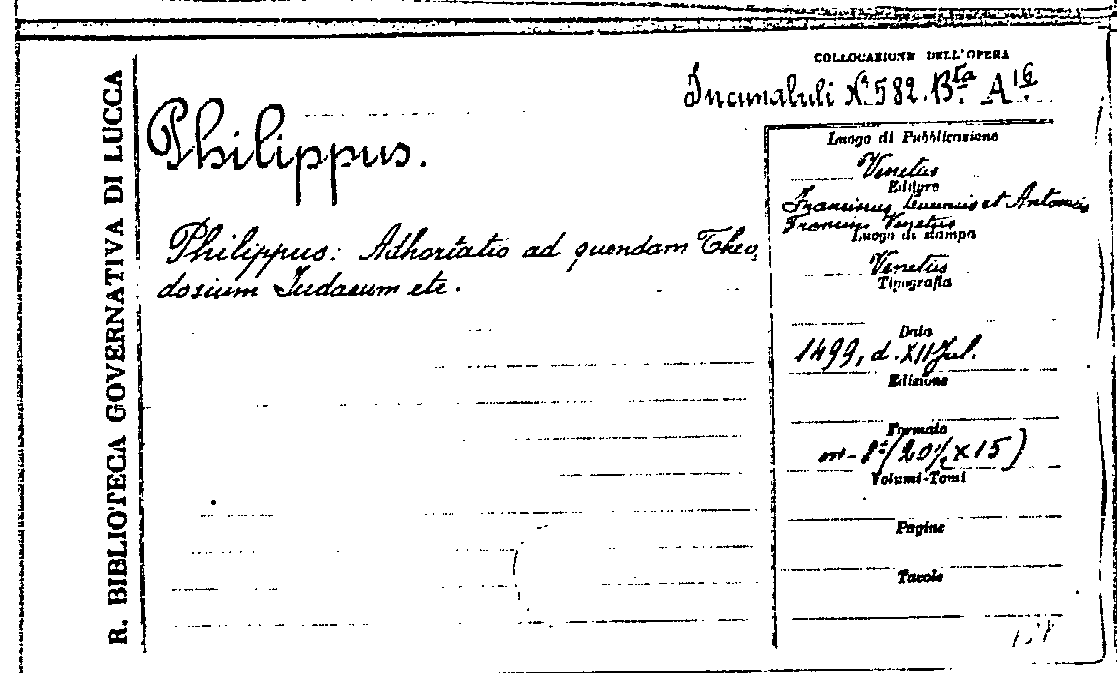 R. BIBLIOTECA GOVERNATIVA DI LUCCA
COLLOCAZIONE DELL'OPERA
Incunabuli N.º 582. B.ta A 16
Philippus.
Philippus: Adhortatio ad quendam Theo,
dosium Iudaeum etc.
Luogo di Pubblicazione
Venetus
Editore
et Antonius
Venetus
Luogo di stampa
Venetus
Tipografia
Data
1499, d. XII Jul.
Edizione
Formato
in-8º (20½ x 15)
Volumi-Tomi
Pagine
Tavole